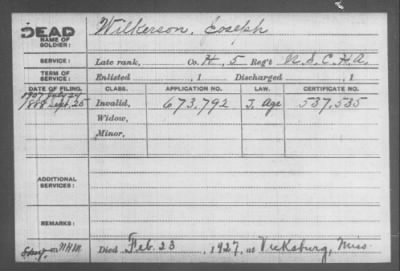 DEAD
NAME OF SOLDIER:
Wilkerson, Joseph
SERVICE: Late rank, Co. H, 5 Reg't U.S.C.H.A.
TERM OF SERVICE: Enlisted , 1 Discharged , 1
DATE OF FILING. CLASS. APPLICATION NO. LAW. CERTIFICATE NO.
1907 July 24
1888 Sept. 25 Invalid, 673,792 J. Age 537,535
Widow,
Minor,
ADDITIONAL SERVICES:
REMARKS:
Died Feb. 23 , 1927, at Vicksburg, Miss.